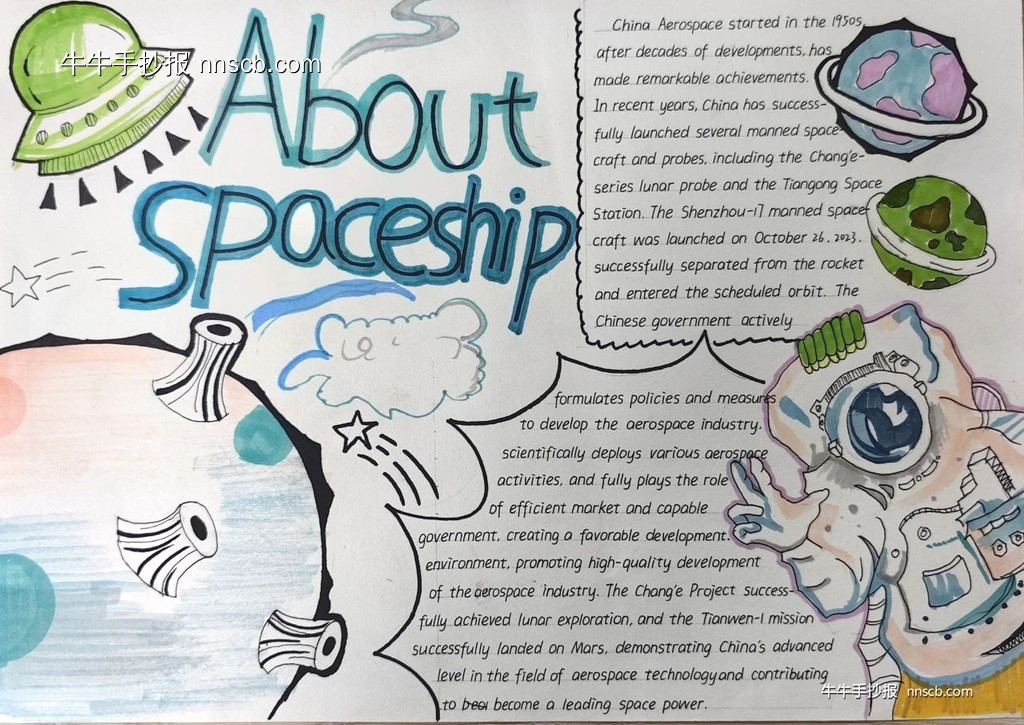 牛牛手抄报 nnscb.com
About
spaceship
China Aerospace started in the 1950s,
after decades of developments, has
made remarkable achievements.
In recent years, China has success-
fully launched several manned space-
craft and probes, including the Chang'e-
series lunar probe and the Tiangong Space
Station. The Shenzhou-17 manned space-
craft was launched on October 26, 2023,
successfully separated from the rocket
and entered the scheduled orbit. The
Chinese government actively
formulates policies and measures
to develop the aerospace industry,
scientifically deploys various aerospace
activities, and fully plays the role
of efficient market and capable
government, creating a favorable development
environment, promoting high-quality development
of the aerospace industry. The Chang'e Project success-
fully achieved lunar exploration, and the Tianwen-1 mission
successfully landed on Mars, demonstrating China's advanced
level in the field of aerospace technology and contributing
to become a leading space power.
牛牛手抄报 nnscb.com